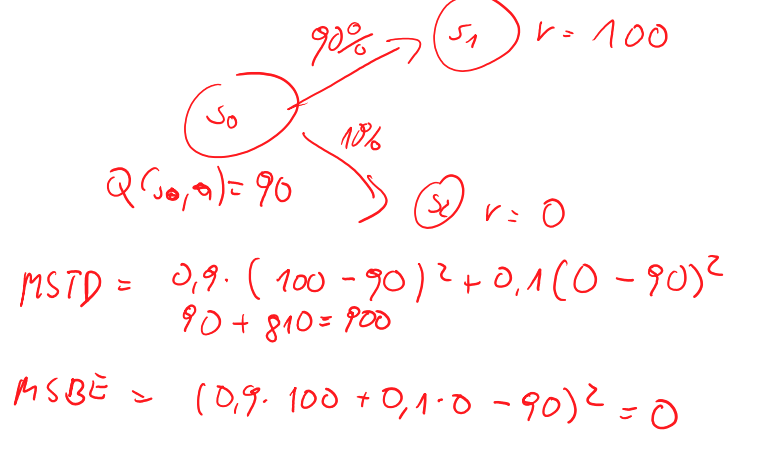 90% S1 r = 100
S0
10%
Q(s0,a) = 90
r = 0
MSTD = 0,9 · (100 - 90)² + 0,1(0 - 90)²
90 + 810 = 900
MSBE = (0,9 · 100 + 0,1 · 0 - 90)² = 0